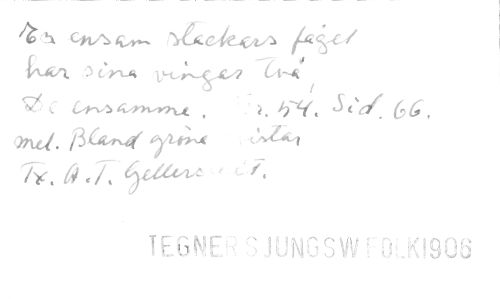 En ensam stackars fågel
har sina vingar två,
De ensamme. Nr. 54. Sid. 66.
mel. Bland gröna
Tx. A.T. Gellerstedt.
TEGNER SJUNGSW FOLK1906